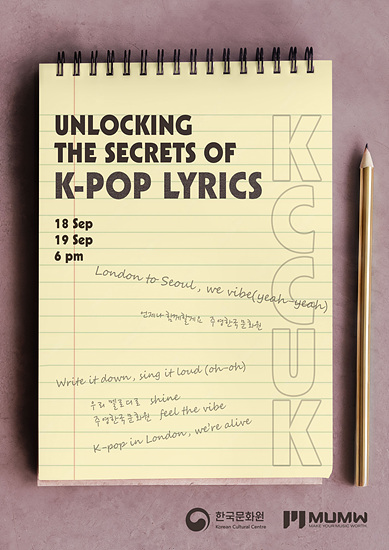 UNLOCKING
THE SECRETS OF
K-POP LYRICS
18 Sep
19 Sep
6 pm
KCCUK
London to Seoul, we vibe(yeah-yeah)
언제나 함께할게요 주영한국문화원
Write it down, sing it loud (oh-oh)
우리 멜로디로 shine
주영한국문화원 feel the vibe
K-pop in London, we're alive
한국문화원
Korean Cultural Centre
MUMW
MAKE YOUR MUSIC WORTH.